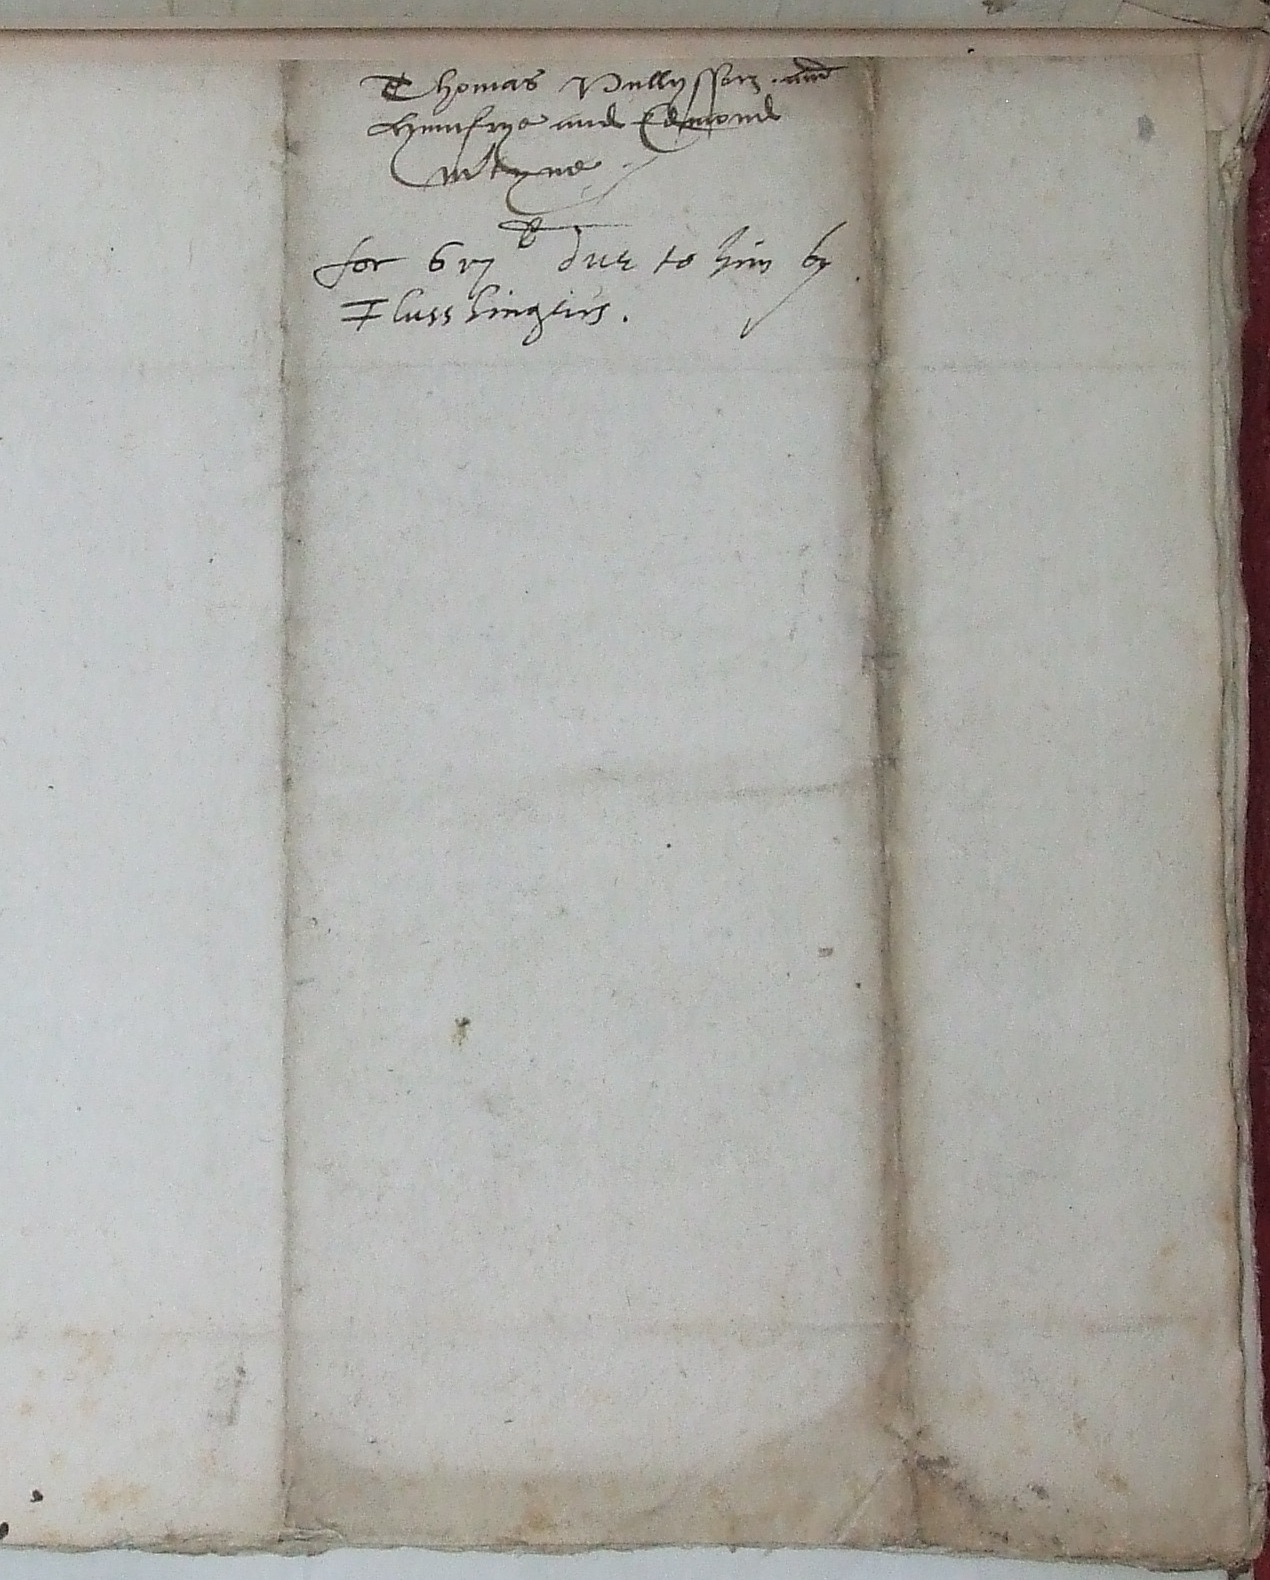 Thomas Nullysson. and
Humfrye and Edmond
for due to him by
Flusshingers.